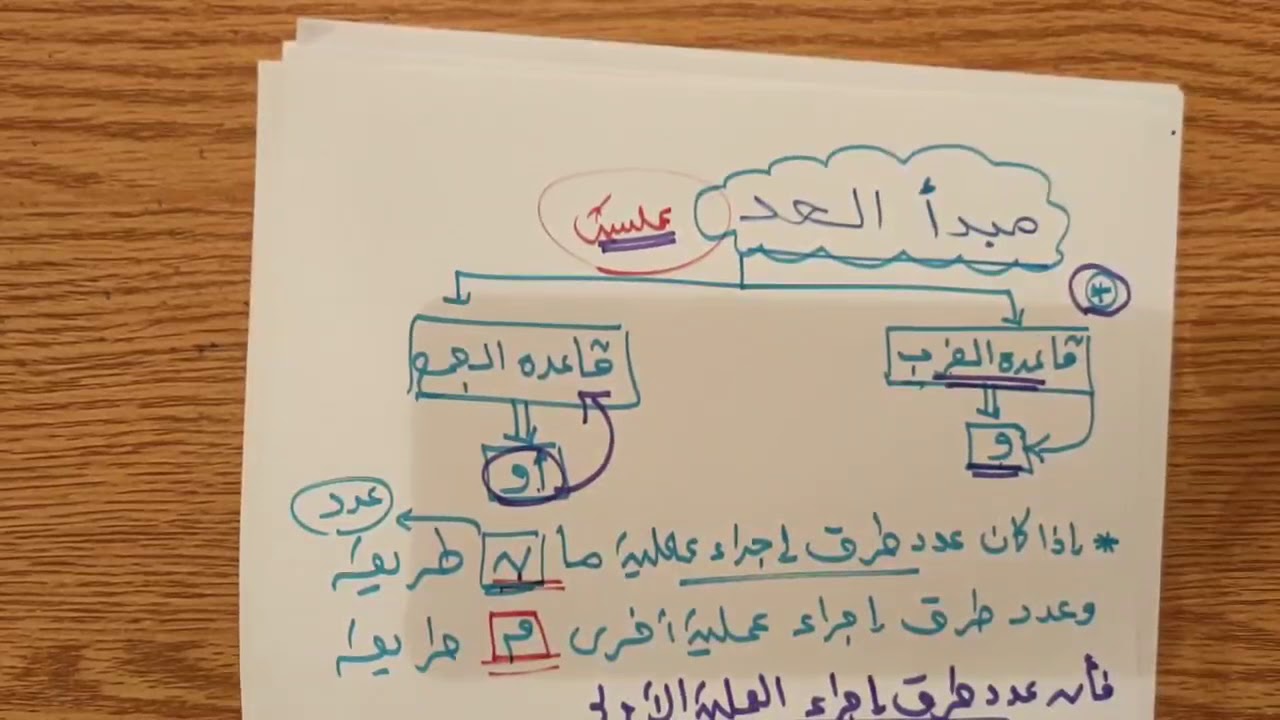 مبدأ العد
عمليتين
*
قاعده الضرب
قاعده الجمع
و
أو
عدد
* إذا كان عدد طرق إجراء عملية ما ن طريقة
وعدد طرق إجراء عملية أخرى م طريقة
فأن عدد طرق إجراء العملية الأولى